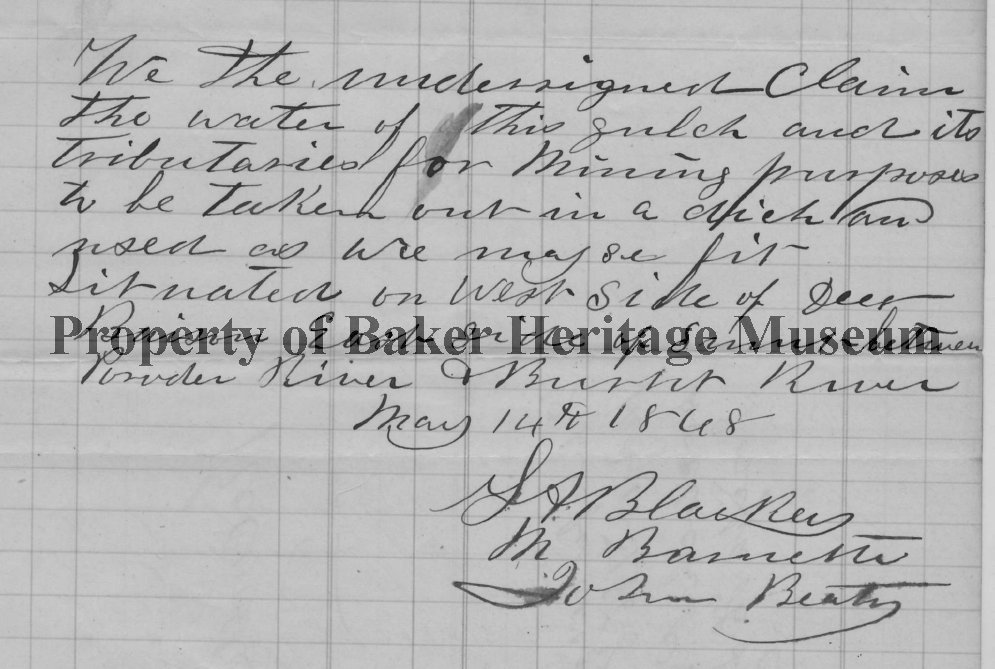 We the undersigned Claim
the water of this gulch and its
tributaries for Mining purposes
to be taken out in a dich an
used as we may se fit
Situated on West Side of Deer
Property of Baker Heritage Museum
East Side of between
Powder River & Burnt River
May 14th 1868
Blackey
M Barnette
John Beaty